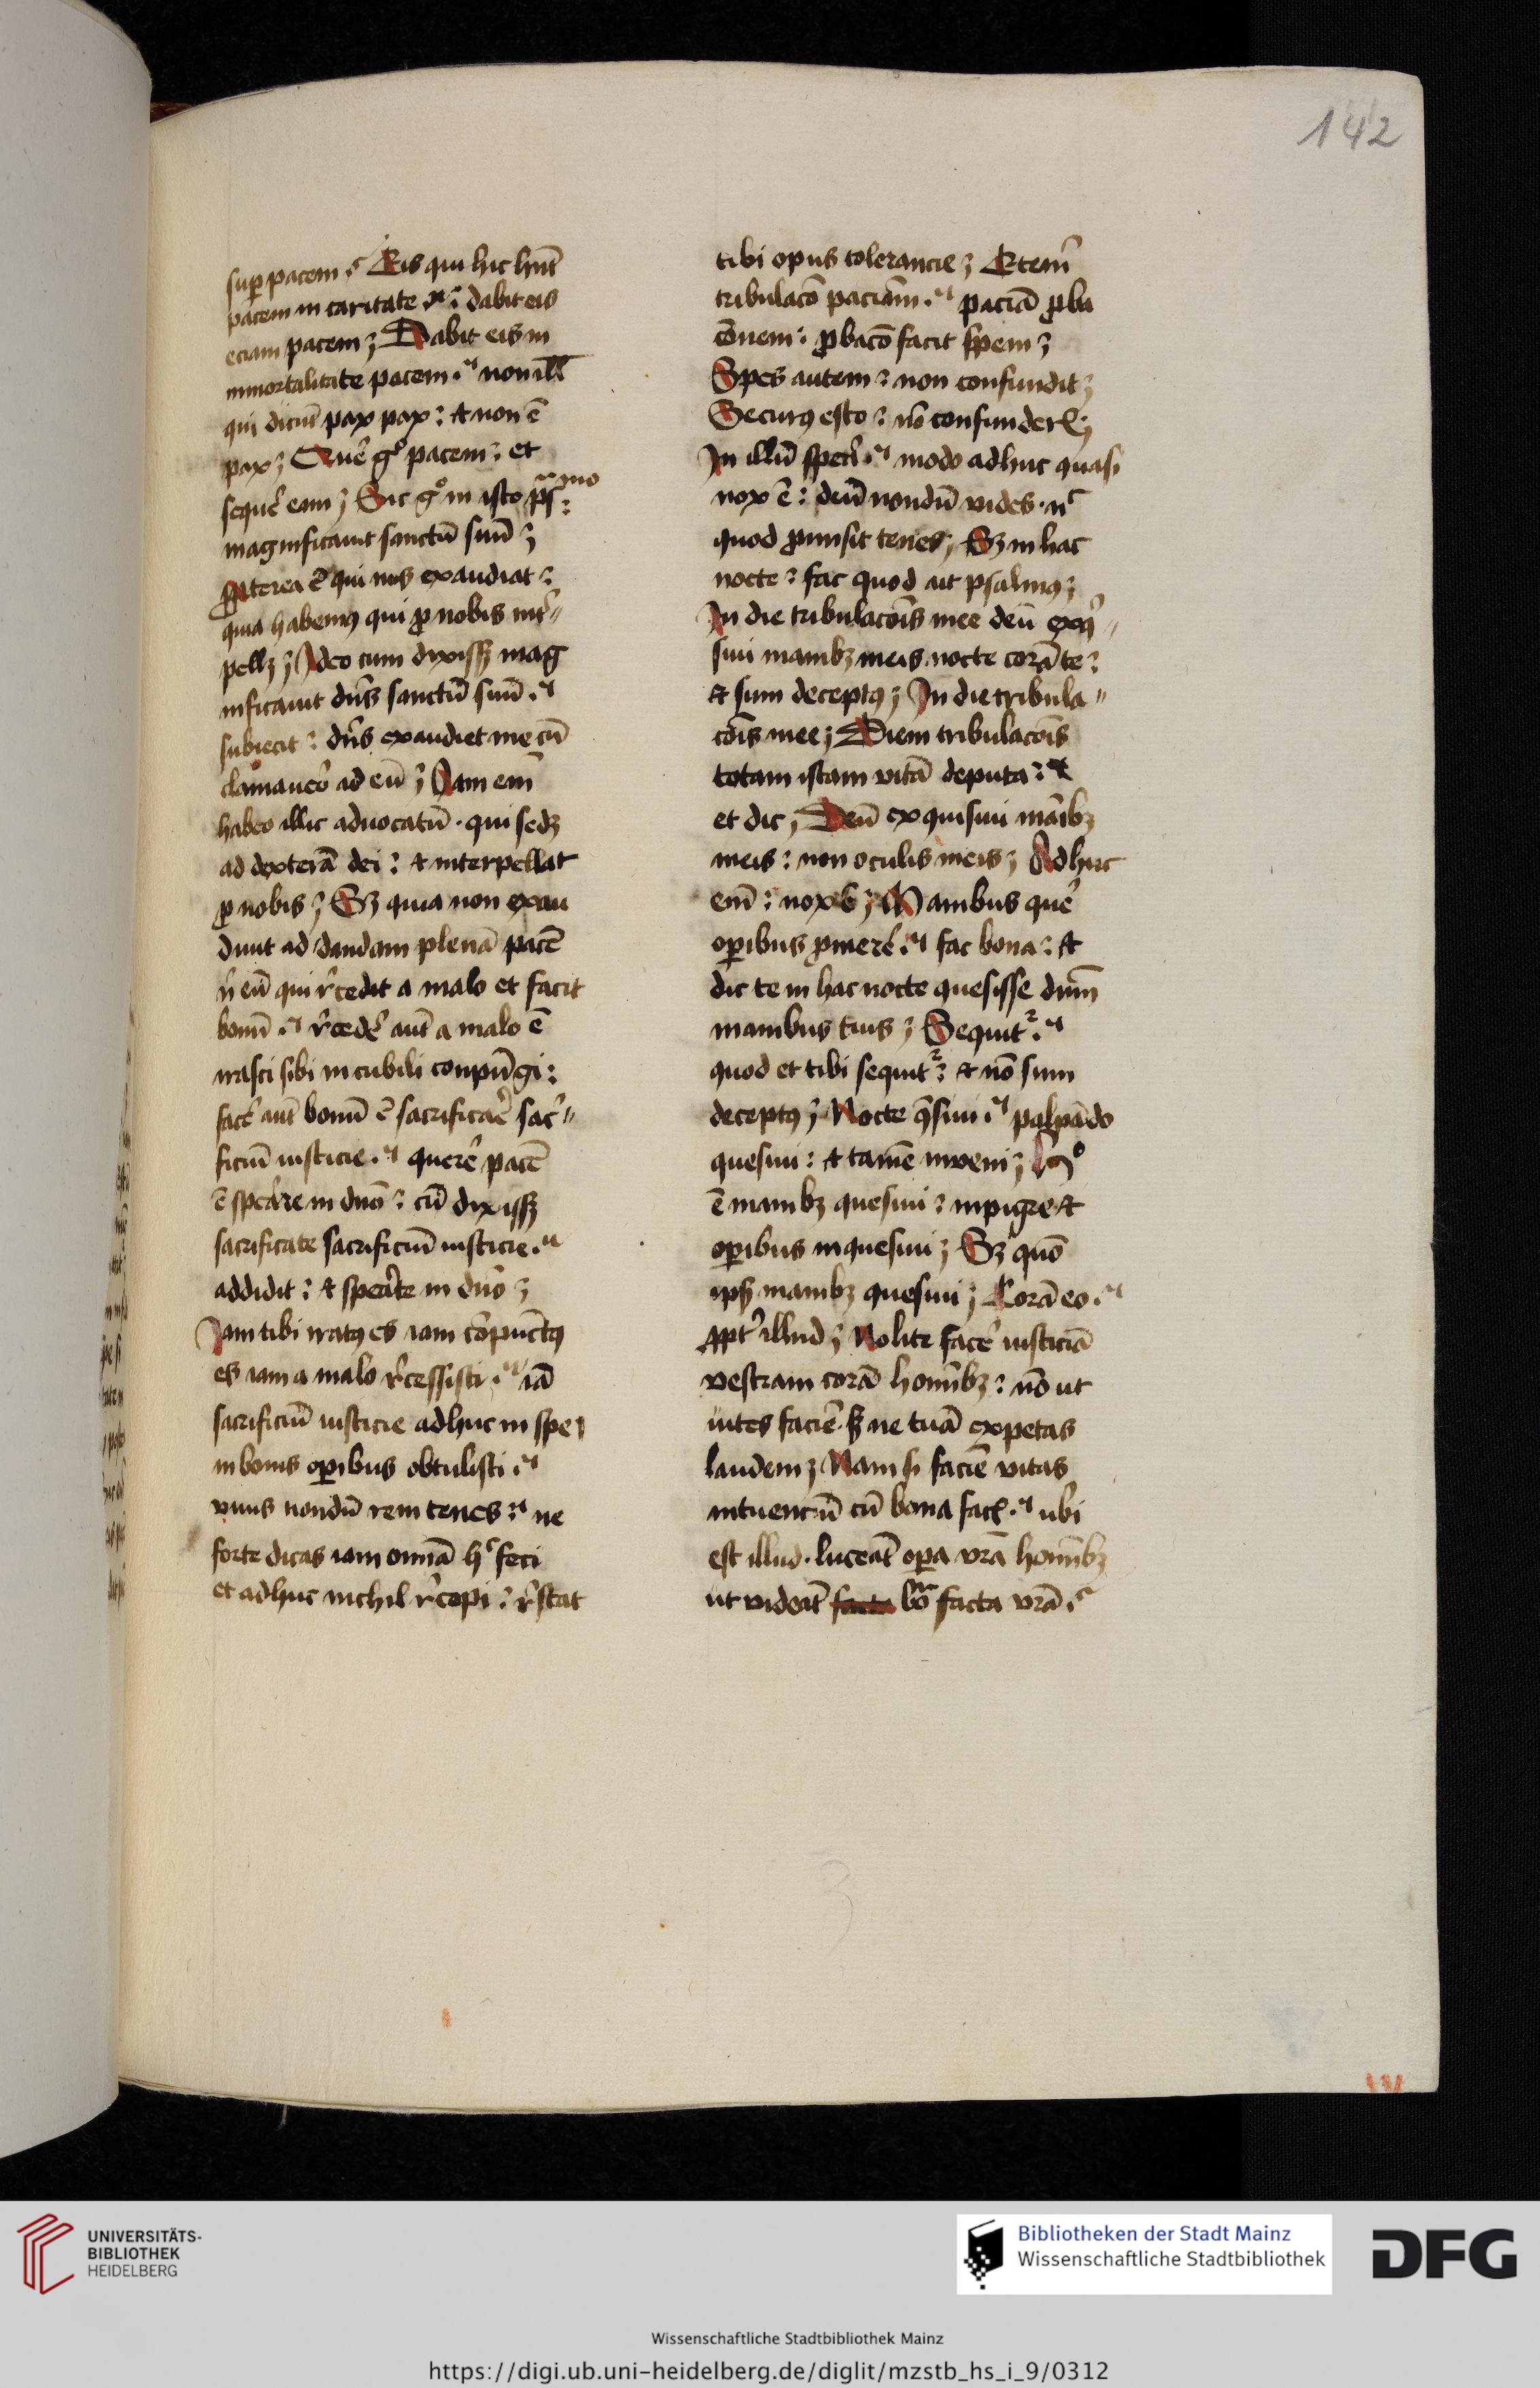 142
sup pacem Eis qui hic hn̄t
pacem in caritate dabit eis
eciam pacem Dabit eis in
inmortalitate pacem non ill̄
qui dicūt pax pax : et non ē
pax Quēr gº pacem : et
sequēr eam Sic gº in isto psͣmo
magnificauit sanctū suū
ꝓpterea ē qui nos exaudiat
quia habemꝰ qui ꝓ nobis int̄
pellꝫ Ideo cum dixissꝫ mag
nificauit dn̄s sanctū suū
subiecit : dn̄s exaudiet me cū
clamauero ad eū Nam em̄
habeo illic aduocatū · qui sedꝫ
ad dexterā dei : et interpellat
ꝓ nobis Sꝫ quia non exau
diūt ad dandam plenā pacē
n̄ eū qui rͤcedit a malo et facit
bonū rͤcedēr aūt a malo ē
irasci sibi in cubili conpūgi :
facēr aūt bonū ē sacrificār sacͥ
ficiū iusticie querēr pacē
ē speͣre in dn̄o : cū dixissꝫ
sacrificate sacrificiū iusticie
addidit : et speͣte in dn̄o
Jam tibi iratꝰ es iam cōpūctꝰ
es iam a malo rͤcessisti iā
sacrificiū iusticie adhuc in spe
in bonis opibus obtulisti
vnus nondū rem tenes ne
forte dicas iam omnā hͨ feci
et adhuc nichil rͤcepi : rͤstat
tibi opus tolerancie Etem̄
tribulacō paciām paciā ꝓba
cōnem : ꝓbacō facit spem
Spes autem : non confundit
Securꝰ esto : nō confunderꝭ
In illū spera modo adhuc quasi
nox ē : deū nondū vides · nͨ
quod ꝓmisit tenes Sꝫ in hac
nocte : fac quod ait psalmꝰ
In die tribulacōis mee deū exqͥ
siui manibꝫ meis nocte corā te :
et sum deceptꝰ In die tribula
cōis mee Diem tribulacōis
totam istam vitā deputa : et
et dic Deū exquisiui māibꝫ
meis : non oculis meis Adhuc
em̄ : nox ē Manibus quēr
opibus ꝓmerēr fac bona : et
dic te in hac nocte quesisse dn̄m
manibus tuis Sequitᷣ
quod et tibi sequitᷣ : et nō sum
deceptꝰ Nocte q̄siui palpādo
quesiui : et tamē inveni
ē manibꝫ quesiui : inpigre et
opibus inquesiui Sꝫ quō
ipsꝫ manibꝫ quesiui Corā eo
ꝓpt̄ illud Nolite facēr iusticiā
vestram corā hom̄ibꝫ : nō ut
vites faciē · sꝫ ne tuā expetas
laudem Nam si faciē vitas
intuenciū cū bona facꝭ ubi
est illud · luceāt opa vrā hom̄ibꝫ
ut videāt facta boͣ facta vrā
UNIVERSITÄTS-
BIBLIOTHEK
HEIDELBERG
Bibliotheken der Stadt Mainz
Wissenschaftliche Stadtbibliothek
DFG
Wissenschaftliche Stadtbibliothek Mainz
https://digi.ub.uni-heidelberg.de/diglit/mzstb_hs_i_9/0312